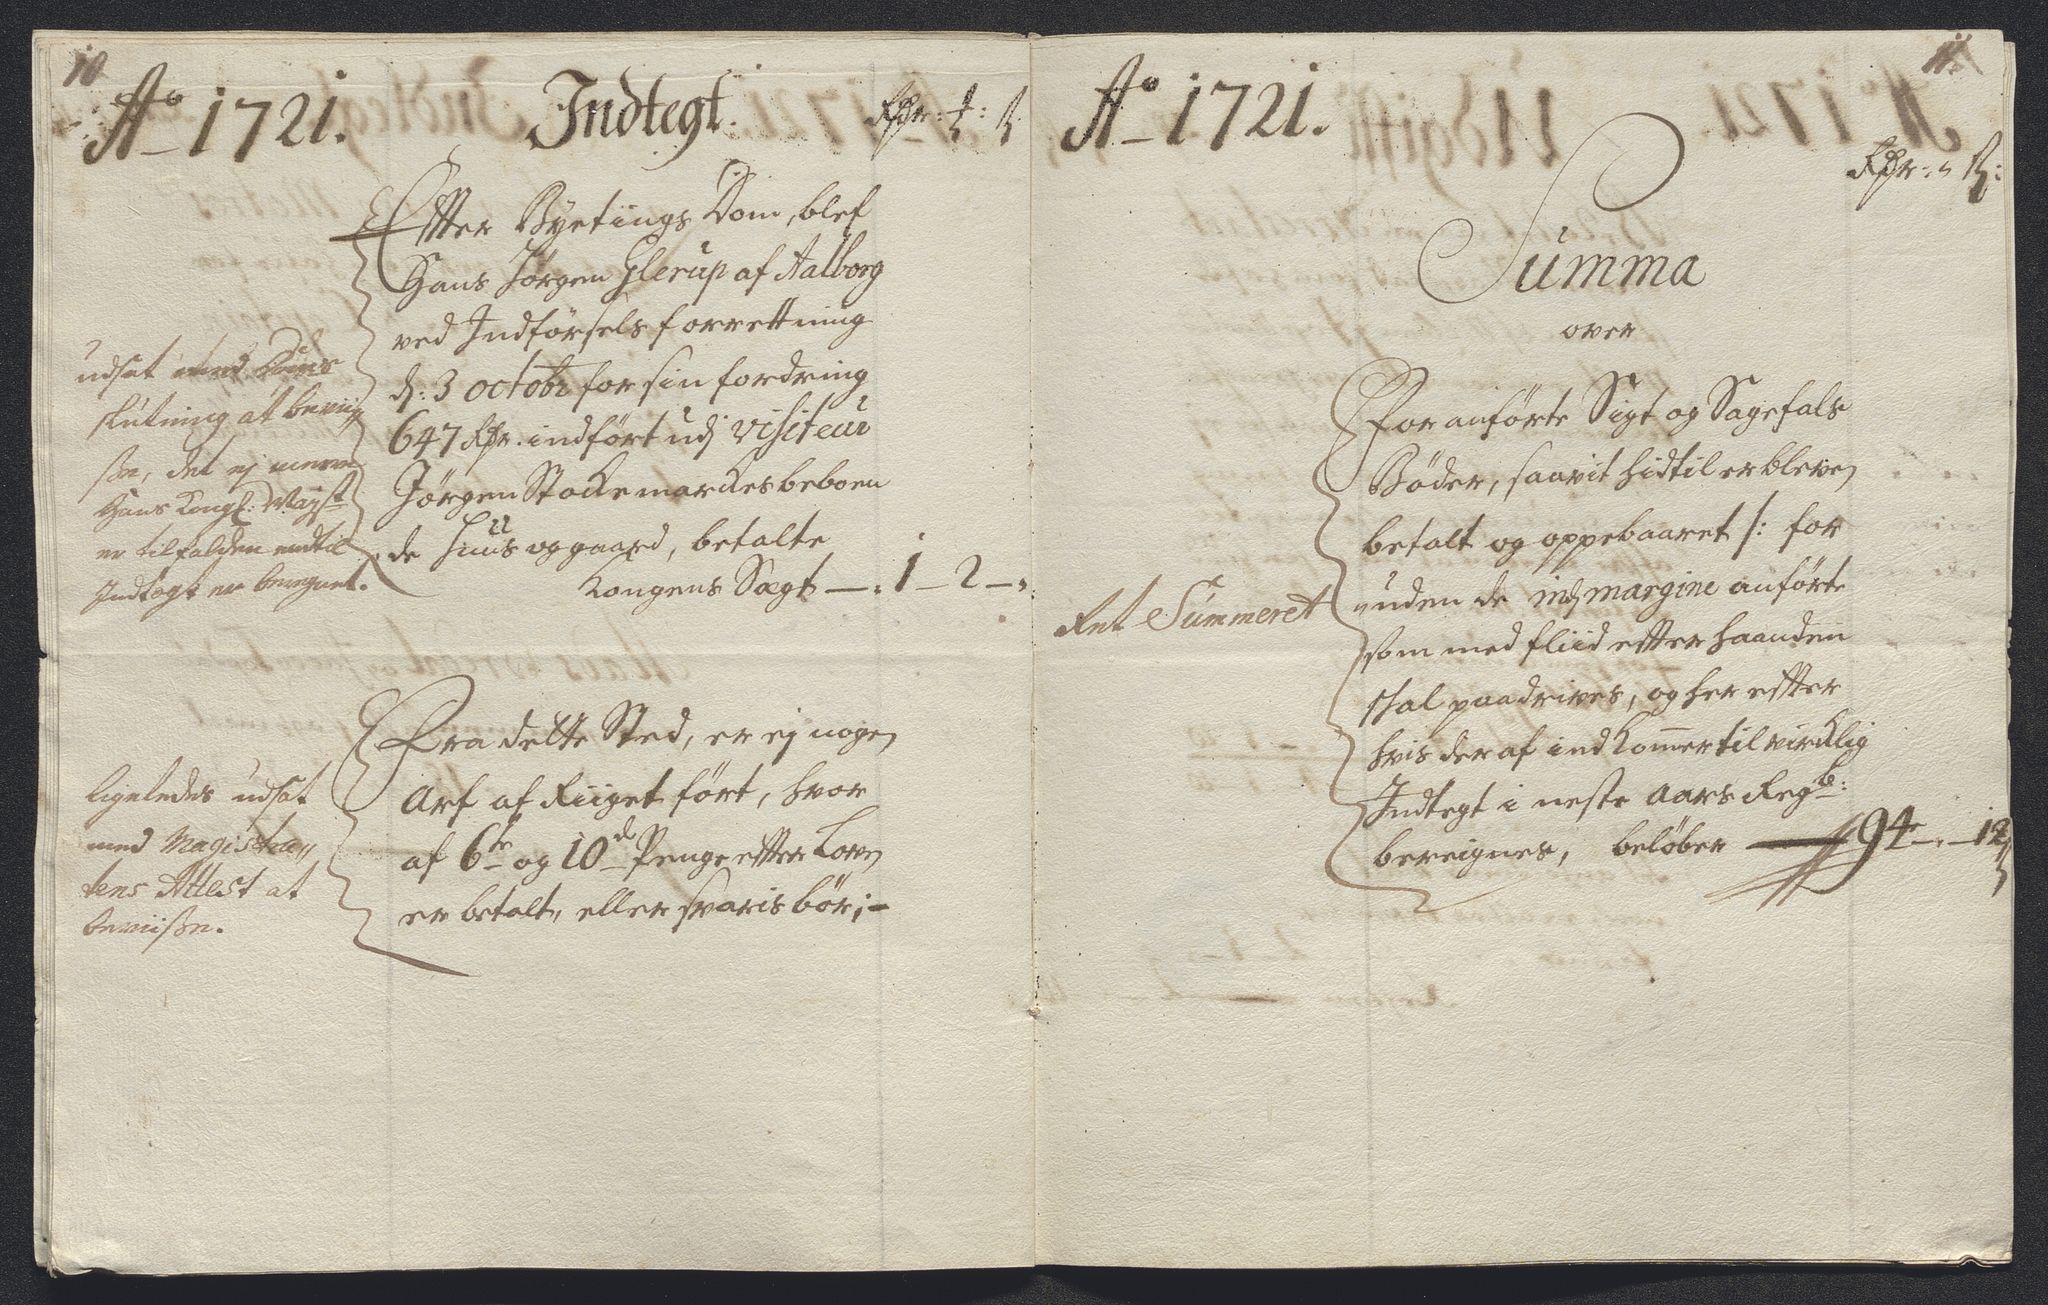 10
Ao 1721. Indtegt. Rdr: ƺ: ß
Effter Byetings Dom, blef
Hans Jørgen Glerup af Aalborg
ved Indførsels forrettning
d: 3 octobr for sin fordring
647 Rdr. indført udj Visiteur
Jørgen Stockemarckes beboen
de Huus og gaard, betalte
Kongens Sagt —. 1 — 2 —„
udsat med
slutning at bevii„
ße, det ej meere
Hans Kongl: Mayst
er tilfalden end til
Indtegt er beregnet.
Fra dette Sted, er ej nogen
Arf af Riiget ført, hvor
af 6te og 10de Penge efter Loven
er betalt, eller svaris bør;—
ligeledes udsat
med Magistra„
tens Attest at
beviiße.
11.
Ao 1721.
Rdr: „ ß:
Summa
over
Foranførte Sigt og Sagefals
Bøder, saavit hidtil er bleven
betalt og oppebaaret /: for
uden de indj margine anførte
som med fliid efter haanden
skal paadrives, og her effter
hvis deraf indkommer til virchlig
Indtegt i neste Aars Regb:
bereignes, beløber — 94 —„— 12
Ret Summeret